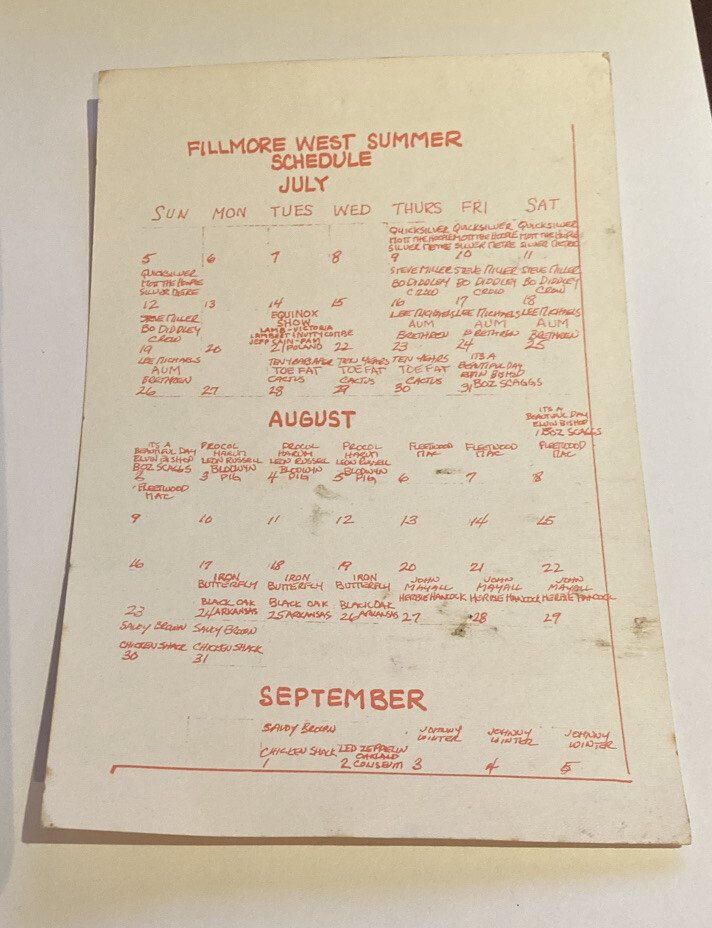 FILLMORE WEST SUMMER
SCHEDULE
JULY
SUN MON TUES WED THURS FRI SAT
QUICKSILVER QUICKSILVER QUICKSILVER
MOTT THE HOOPLE MOTT THE HOOPLE MOTT THE HOOPLE
SILVER METRE SILVER METRE SILVER METRE
5 6 7 8 9 10 11
QUICKSILVER STEVE MILLER STEVE MILLER STEVE MILLER
MOTT THE HOOPLE BO DIDDLEY BO DIDDLEY BO DIDDLEY
SILVER METRE CROW CROW CROW
12 13 14 15 16 17 18
STEVE MILLER EQUINOX LEE MICHAELS LEE MICHAELS LEE MICHAELS
BO DIDDLEY SHOW AUM AUM AUM
CROW LAMB-VICTORIA BRETHREN BRETHREN BRETHREN
LAMBERT & NUTTYCOMBE
JEFF CAIN-PAM
19 20 21 POLAND 22 23 24 25
LEE MICHAELS TEN YEARS TEN YEARS ITS A
AUM TOE FAT TOE FAT TOE FAT BEAUTIFUL DAY
BRETHREN CACTUS CACTUS CACTUS ELVIN BISHOP
26 27 28 29 30 31 BOZ SCAGGS
AUGUST
ITS A
BEAUTIFUL DAY
ELVIN BISHOP
1 BOZ SCAGGS
ITS A PROCOL PROCOL PROCOL FLEETWOOD FLEETWOOD FLEETWOOD
BEAUTIFUL DAY HARUM HARUM HARUM MAC MAC MAC
ELVIN BISHOP LEON RUSSELL LEON RUSSELL LEON RUSSELL
BOZ SCAGGS BLODWYN BLODWYN BLODWYN
2 3 PIG 4 PIG 5 PIG 6 7 8
FLEETWOOD
MAC
9 10 11 12 13 14 15
16 17 18 19 20 21 22
IRON IRON IRON JOHN JOHN JOHN
BUTTERFLY BUTTERFLY BUTTERFLY MAYALL MAYALL MAYALL
BLACK OAK BLACK OAK BLACK OAK HERBIE HANCOCK HERBIE HANCOCK HERBIE HANCOCK
23 24 ARKANSAS 25 ARKANSAS 26 ARKANSAS 27 28 29
SAVOY BROWN SAVOY BROWN
CHICKEN SHACK CHICKEN SHACK
30 31
SEPTEMBER
SAVOY BROWN JOHNNY JOHNNY JOHNNY
WINTER WINTER WINTER
CHICKEN SHACK LED ZEPPELIN
OAKLAND
1 2 COLISEUM 3 4 5